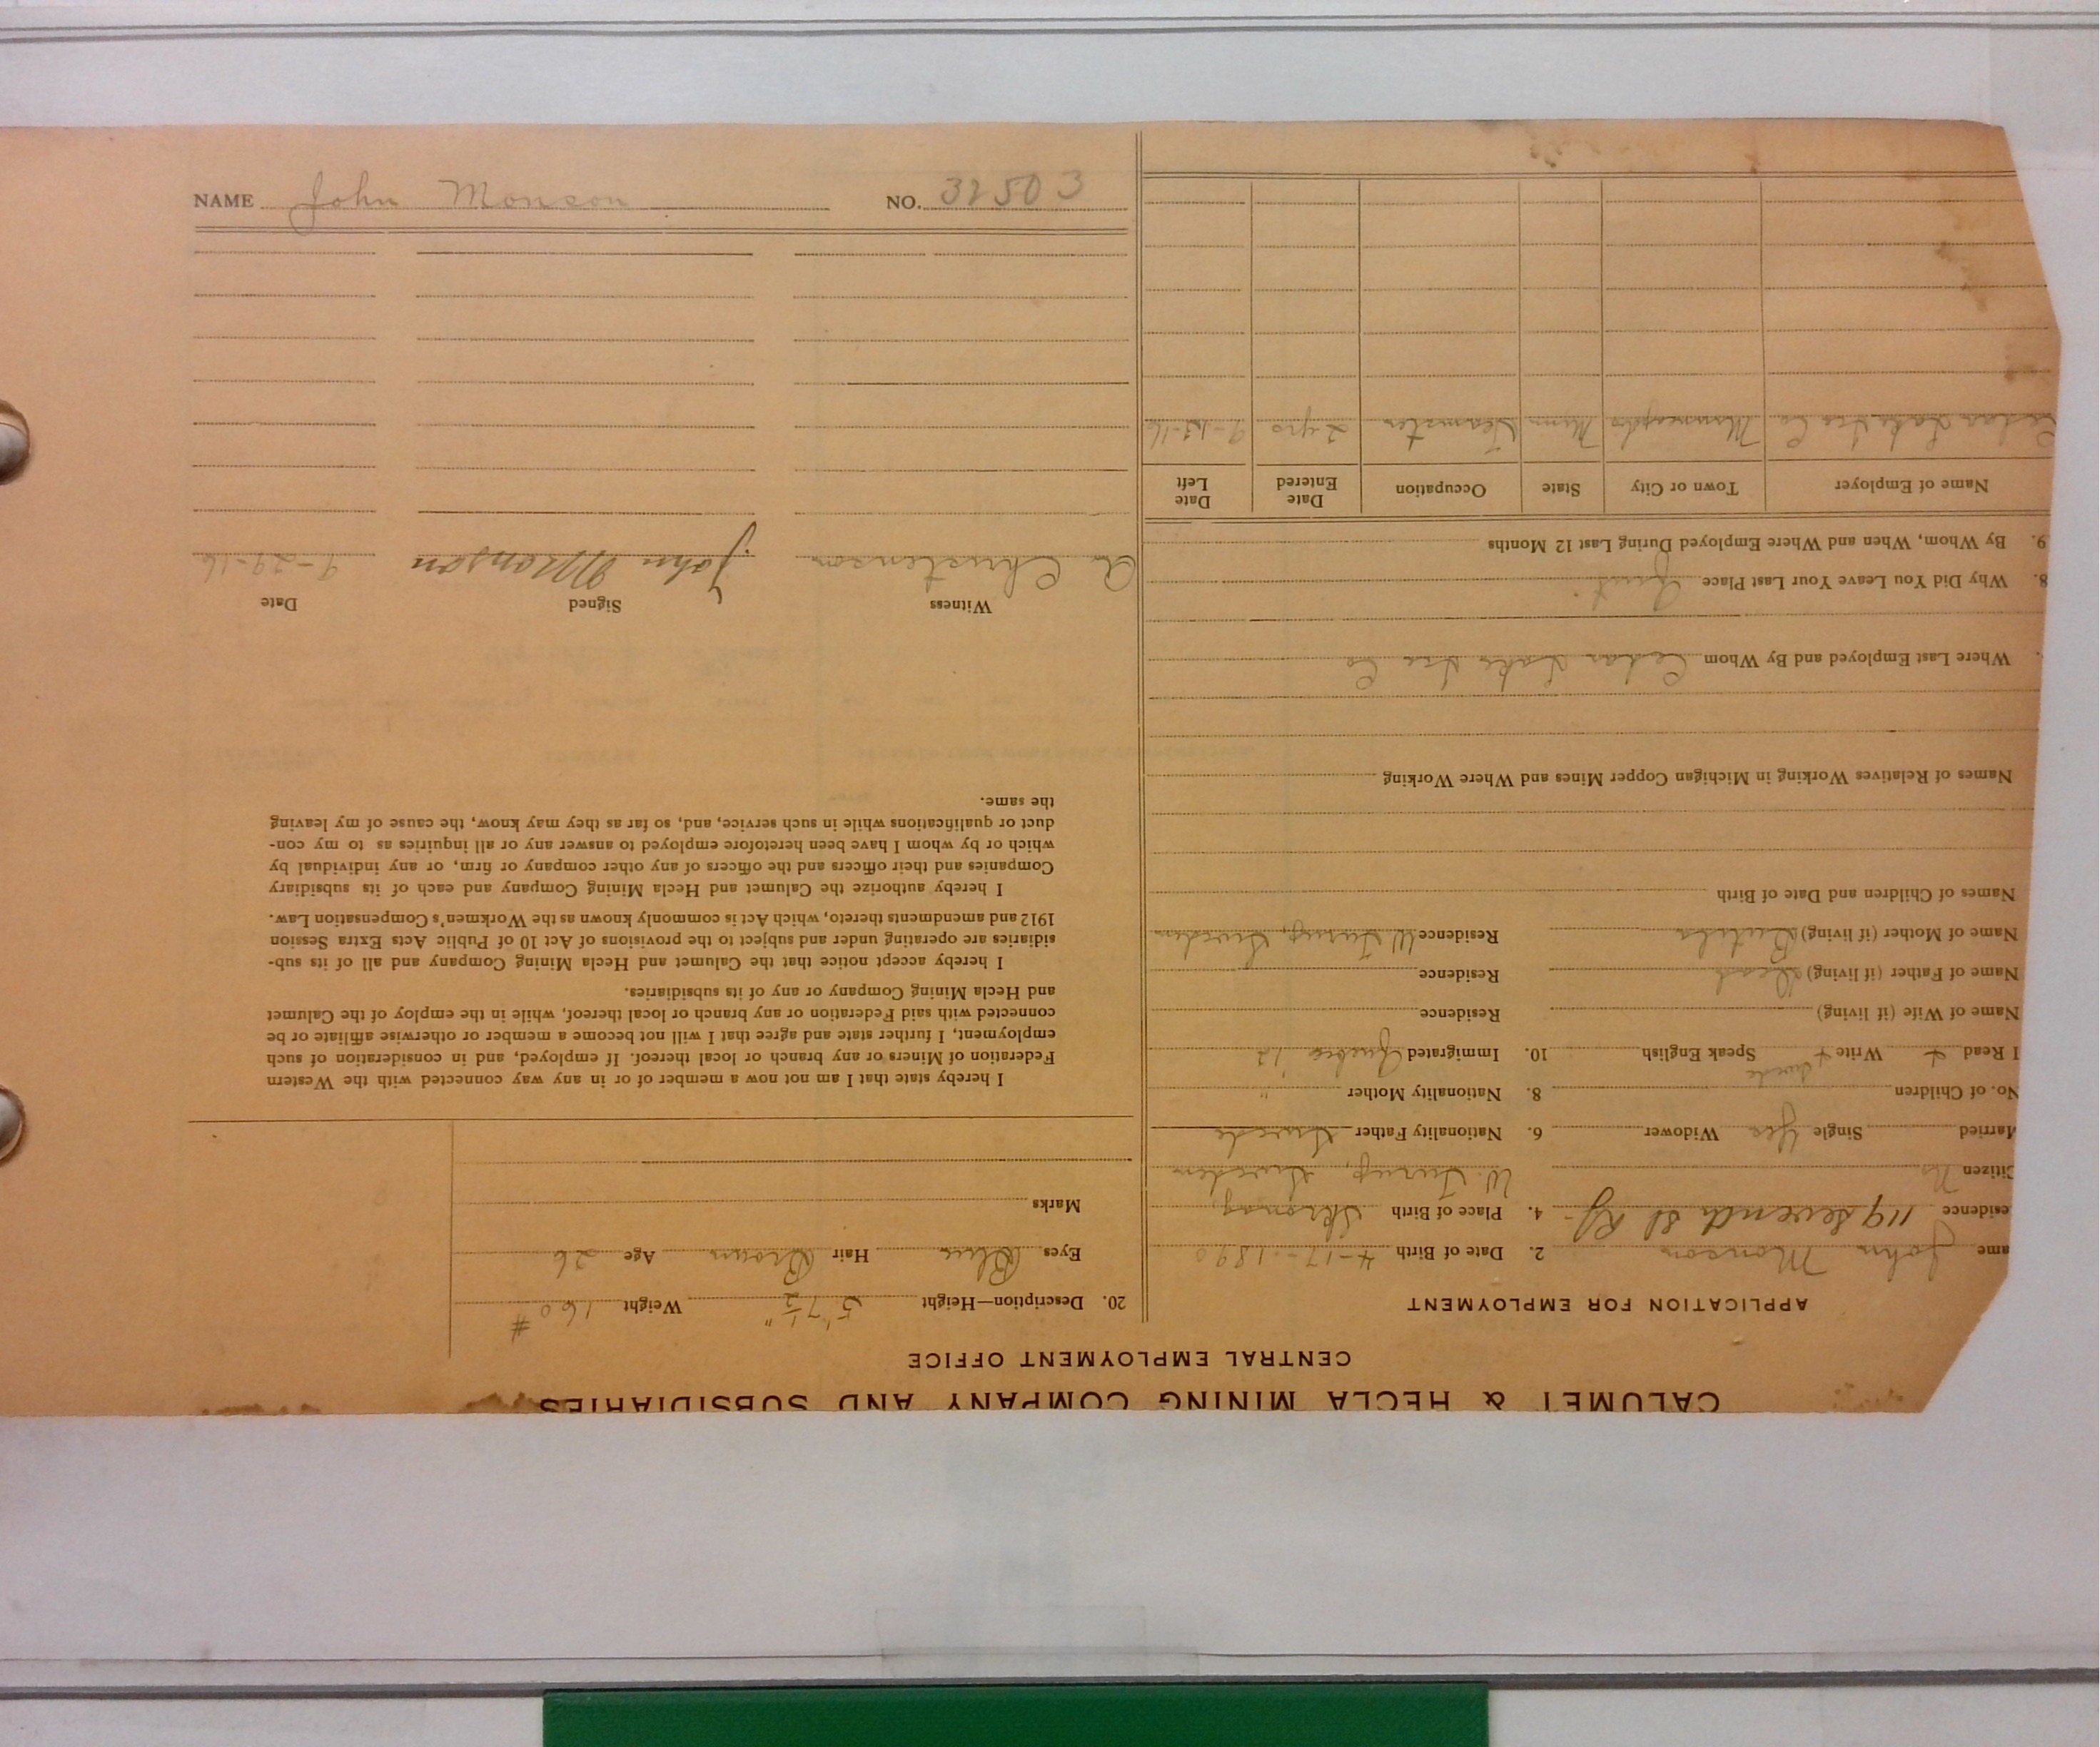 CALUMET & HECLA MINING COMPANY AND SUBSIDIARIES
CENTRAL EMPLOYMENT OFFICE
APPLICATION FOR EMPLOYMENT
ame John Monson 2. Date of Birth 4-17-1890
esidence 119 Seventh St 4. Place of Birth
Citizen No W. Sweden
Married Single Yes Widower 6. Nationality Father Swede
No. of Children 8. Nationality Mother "
Swede
I Read + Write + Speak English 10. Immigrated Quebec '12
Name of Wife (if living) Residence
Name of Father (if living) Dead Residence
Name of Mother (if living) Residence W. Sweden
Names of Children and Date of Birth
Names of Relatives Working in Michigan Copper Mines and Where Working
Where Last Employed and By Whom Cedar Lake Ice Co
8. Why Did You Leave Your Last Place Quit
9. By Whom, When and Where Employed During Last 12 Months
Name of Employer Town or City State Occupation Date Entered Date Left
Cedar Lake Ice Co Minneapolis Minn Teamster 2 yrs 9-15-16
20. Description—Height 5' 7½" Weight 160#
Eyes Blue Hair Brown Age 26
Marks
I hereby state that I am not now a member of or in any way connected with the Western
Federation of Miners or any branch or local thereof. If employed, and in consideration of such
employment, I further state and agree that I will not become a member or otherwise affiliate or be
connected with said Federation or any branch or local thereof, while in the employ of the Calumet
and Hecla Mining Company or any of its subsidiaries.
I hereby accept notice that the Calumet and Hecla Mining Company and all of its sub-
sidiaries are operating under and subject to the provisions of Act 10 of Public Acts Extra Session
1912 and amendments thereto, which Act is commonly known as the Workmen's Compensation Law.
I hereby authorize the Calumet and Hecla Mining Company and each of its subsidiary
Companies and their officers and the officers of any other company or firm, or any individual by
which or by whom I have been heretofore employed to answer any or all inquiries as to my con-
duct or qualifications while in such service, and, so far as they may know, the cause of my leaving
the same.
Witness Signed Date
A. Christenson John Monson 9-29-16
NAME John Monson NO. 32503